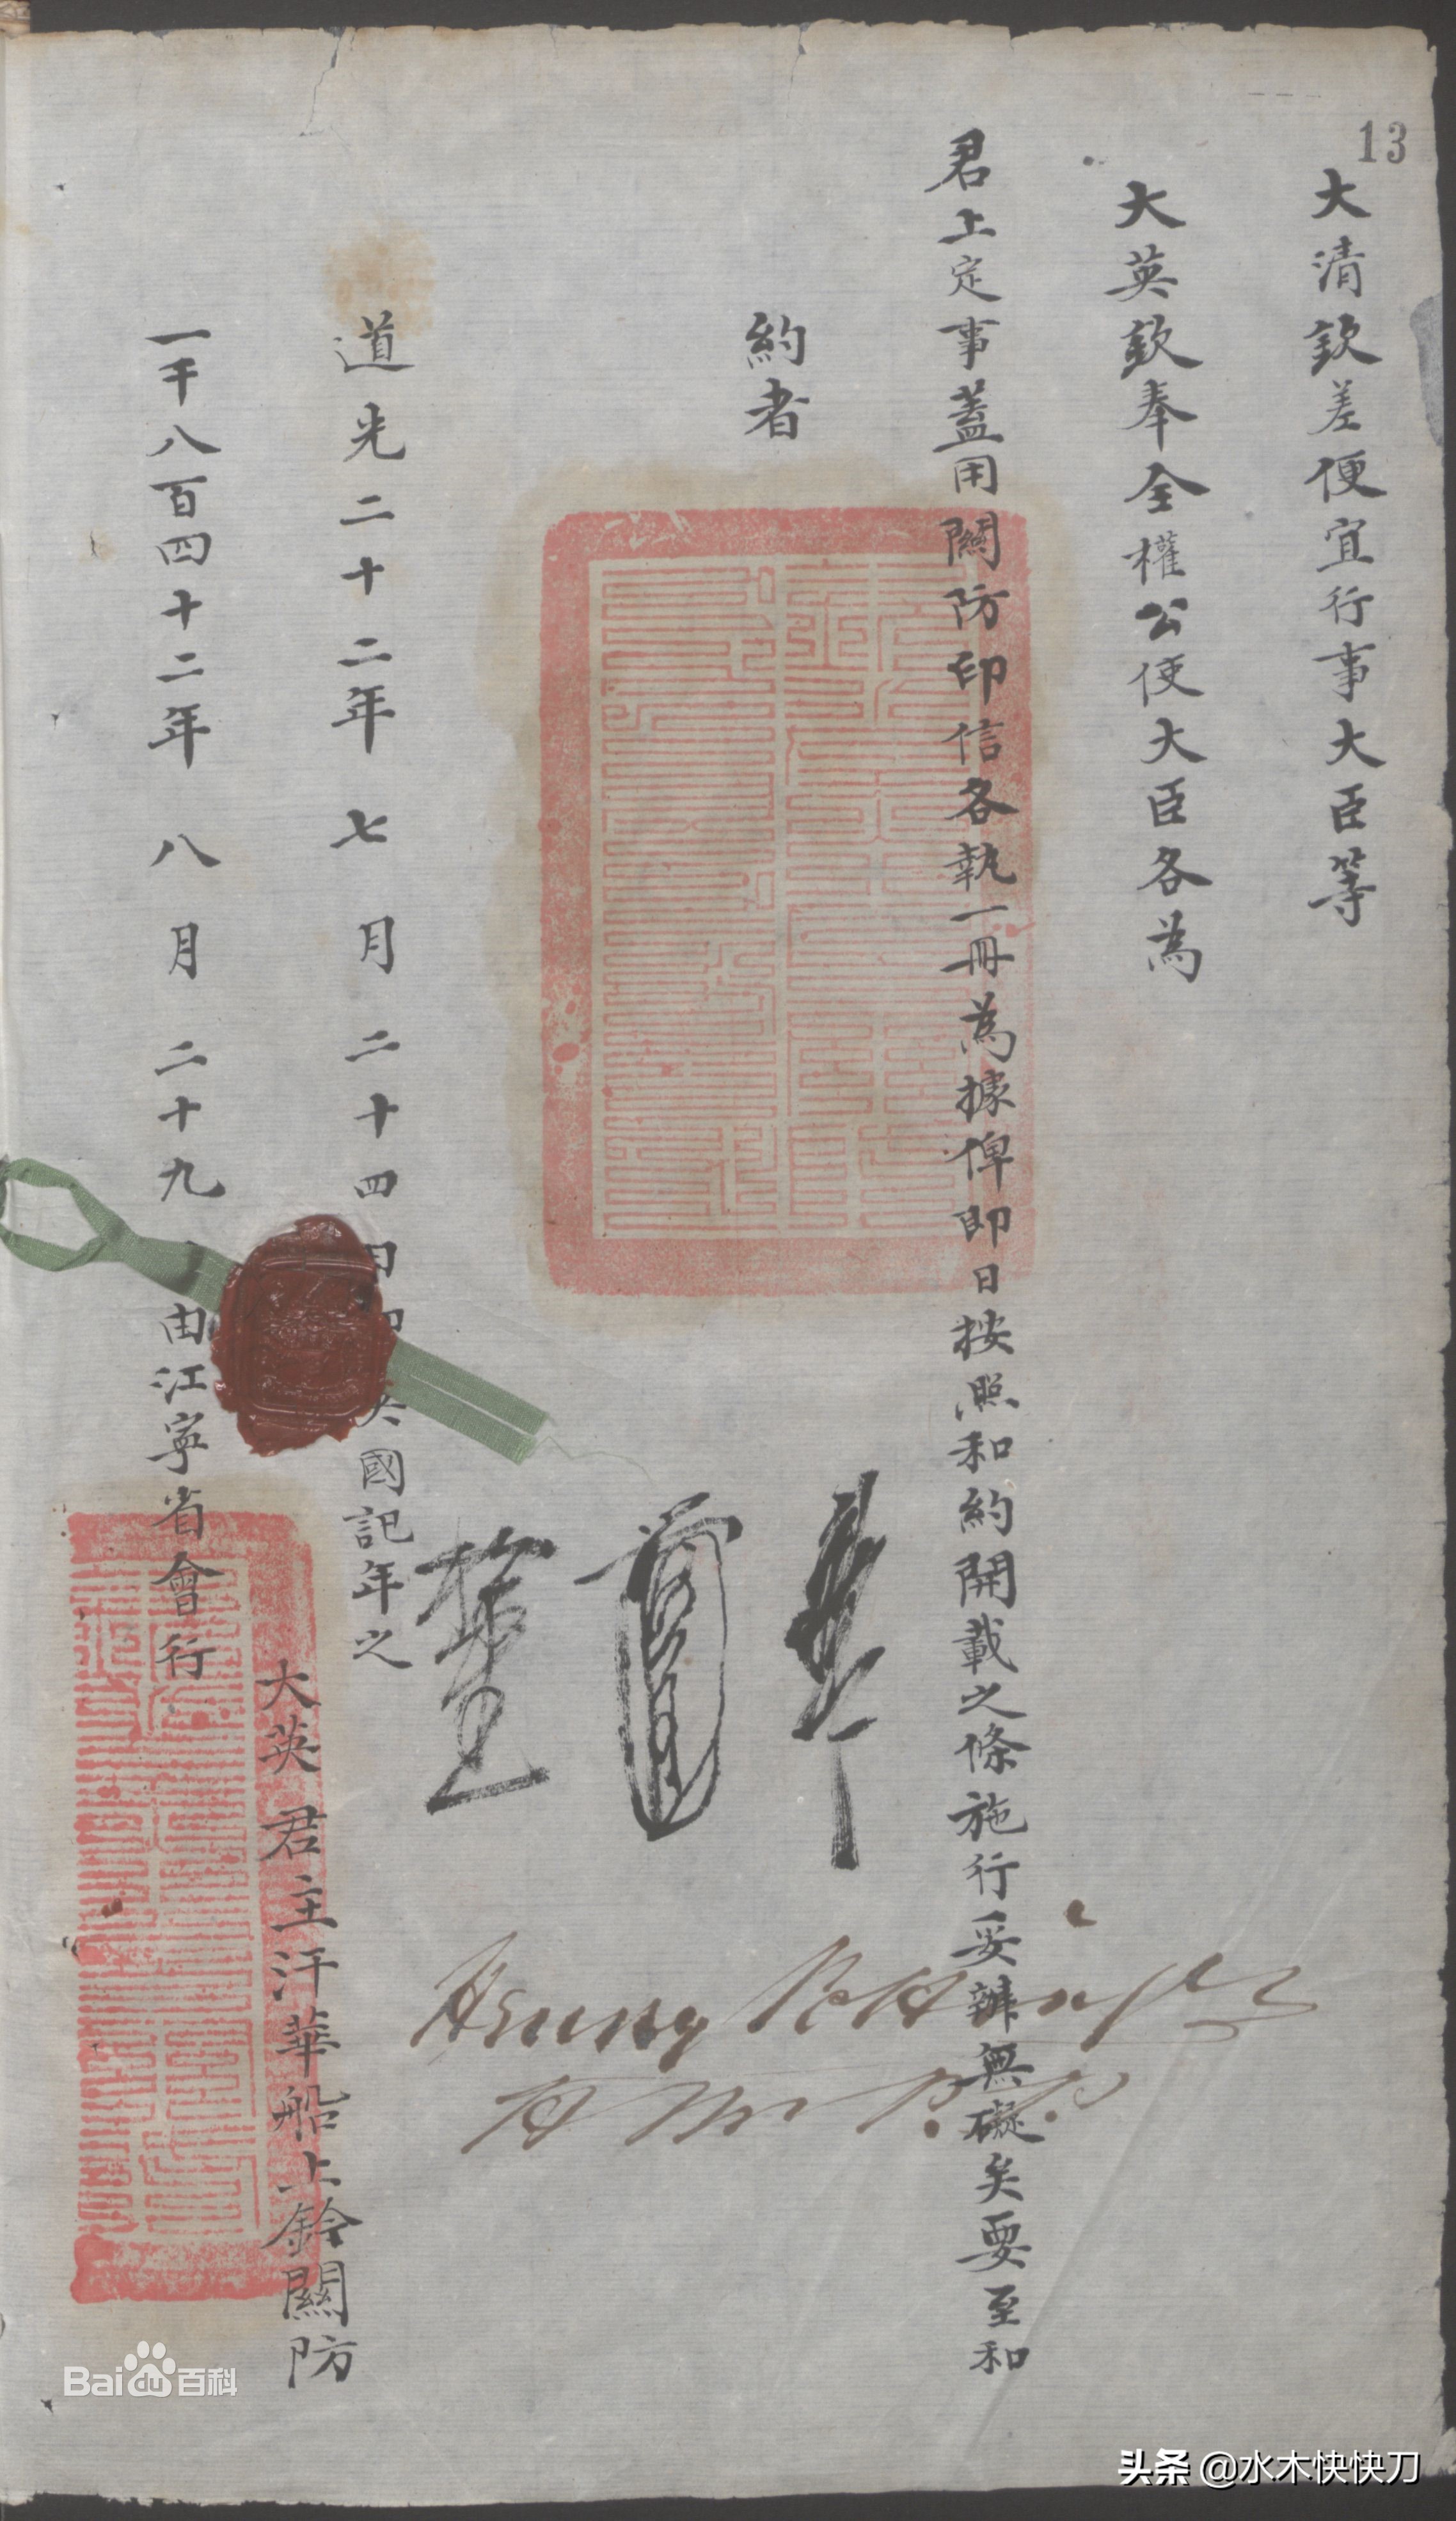 13
大清欽差便宜行事大臣等
大英欽奉全權公使大臣各為
君上定事蓋用關防印信各執一冊為據俾即日按照和約開載之條施行妥辦無礙矣要至和
約者
道光二十二年七月二十四日即英國記年之
一千八百四十二年八月二十九由江寧省會行
大英君主汗華船上鈐關防
Henry Pottinger
Bai百科
头条 @水木快快刀